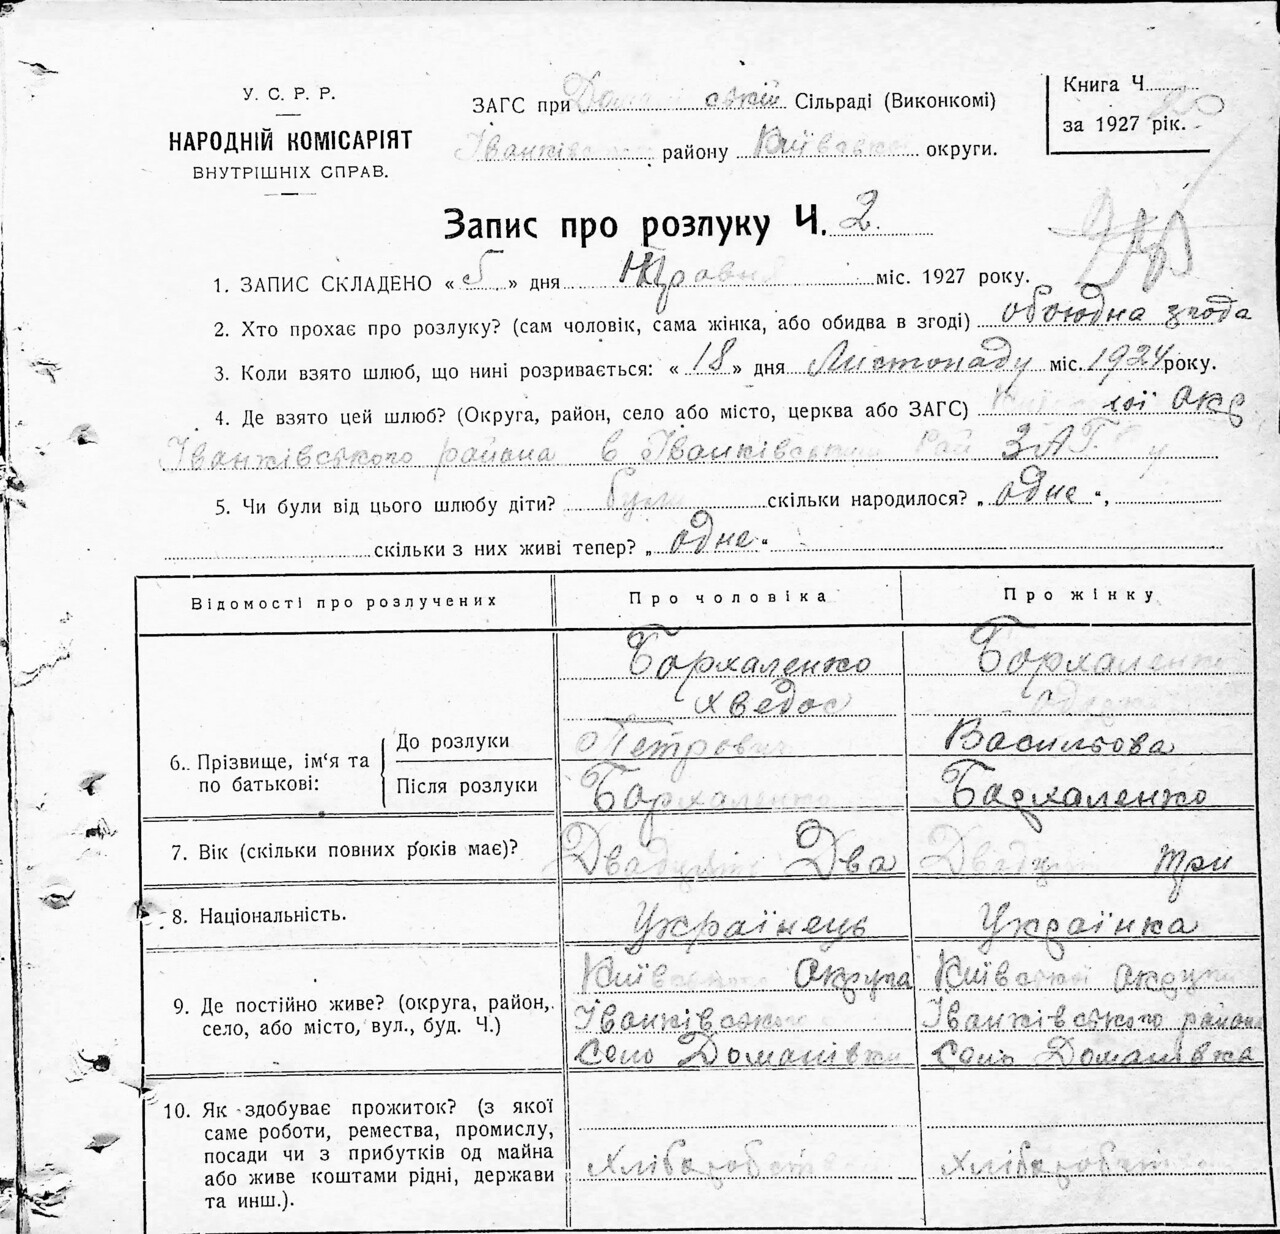 У. С. Р. Р.
НАРОДНІЙ КОМІСАРІЯТ
ВНУТРІШНІХ СПРАВ.
ЗАГС при ській Сільраді (Виконкомі)
Іванківс району Київсько округи.
Книга Ч.
за 1927 рік.
Запис про розлуку Ч. 2.
1. ЗАПИС СКЛАДЕНО « 5 » дня міс. 1927 року.
2. Хто прохає про розлуку? (сам чоловік, сама жінка, або обидва в згоді) обоюдна згода
3. Коли взято шлюб, що нині розривається: « 18 » дня Листопаду міс. 1924 року.
4. Де взято цей шлюб? (Округа, район, село або місто, церква або ЗАГС) окр
Іванківського района в Іванківським Рай ЗАГ
5. Чи були від цього шлюбу діти? були скільки народилося? „ одне “,
скільки з них живі тепер? „ одне “
Відомості про розлучених
Про чоловіка
Про жінку
6. Прізвище, ім'я та по батькові:
До розлуки
Після розлуки
Бархаленко
Хведос
Петрович
Бархаленко
Бархаленко
Васильова
Бархаленко
7. Вік (скільки повних років має)?
Двадцять Два
Двадцять три
8. Національність.
Українець
Українка
9. Де постійно живе? (округа, район,
село, або місто, вул., буд. Ч.)
Округа
Іванківського
Село Доманівки
Київської Округи
Іванківського района
Село Доманівка
10. Як здобуває прожиток? (з якої
саме роботи, ремества, промислу,
посади чи з прибутків од майна
або живе коштами рідні, держави
та инш.).